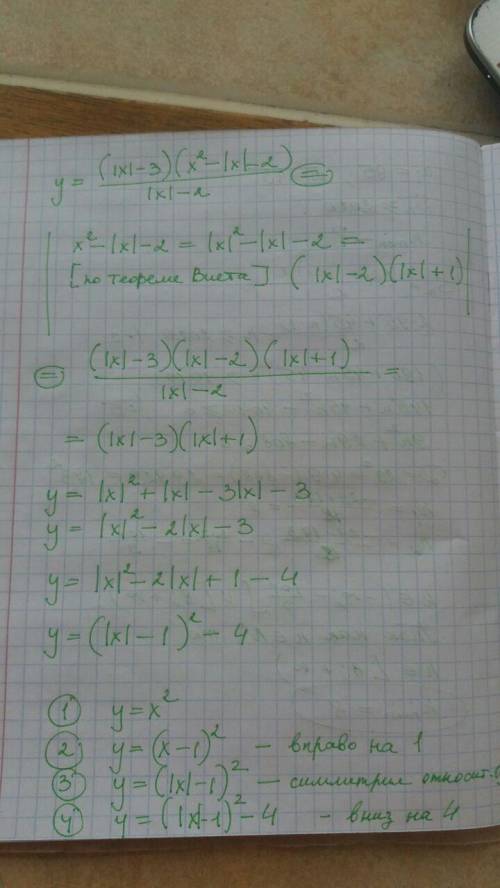 y = (|x|-3)(x²-|x|-2) / (|x|-2) =
x²-|x|-2 = |x|²-|x|-2 =
[по теореме Виета] (|x|-2)(|x|+1)
= (|x|-3)(|x|-2)(|x|+1) / (|x|-2) =
= (|x|-3)(|x|+1)
y = |x|²+|x|-3|x|-3
y = |x|²-2|x|-3
y = |x|²-2|x|+1-4
y = (|x|-1)²-4
1 y=x²
2 y=(x-1)² - вправо на 1
3 y=(|x|-1)² - симметрие относит.
4 y=(|x|-1)²-4 - вниз на 4